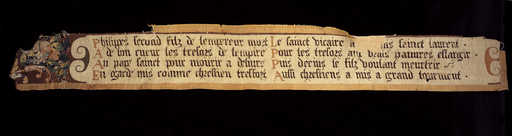 Philippes second filz de lempereur mort
A de bon cueur les tresors de lempire
Au pape sainct pour mourir a delivre
En garde mis comme chrestien tresfort
Le sainct vicaire a sainct laurent
Pour les tresors aux vrais pauvres eslargir
Puis decius le filz voulant meurtrir
Aussi chrestiens a mis a grand torment